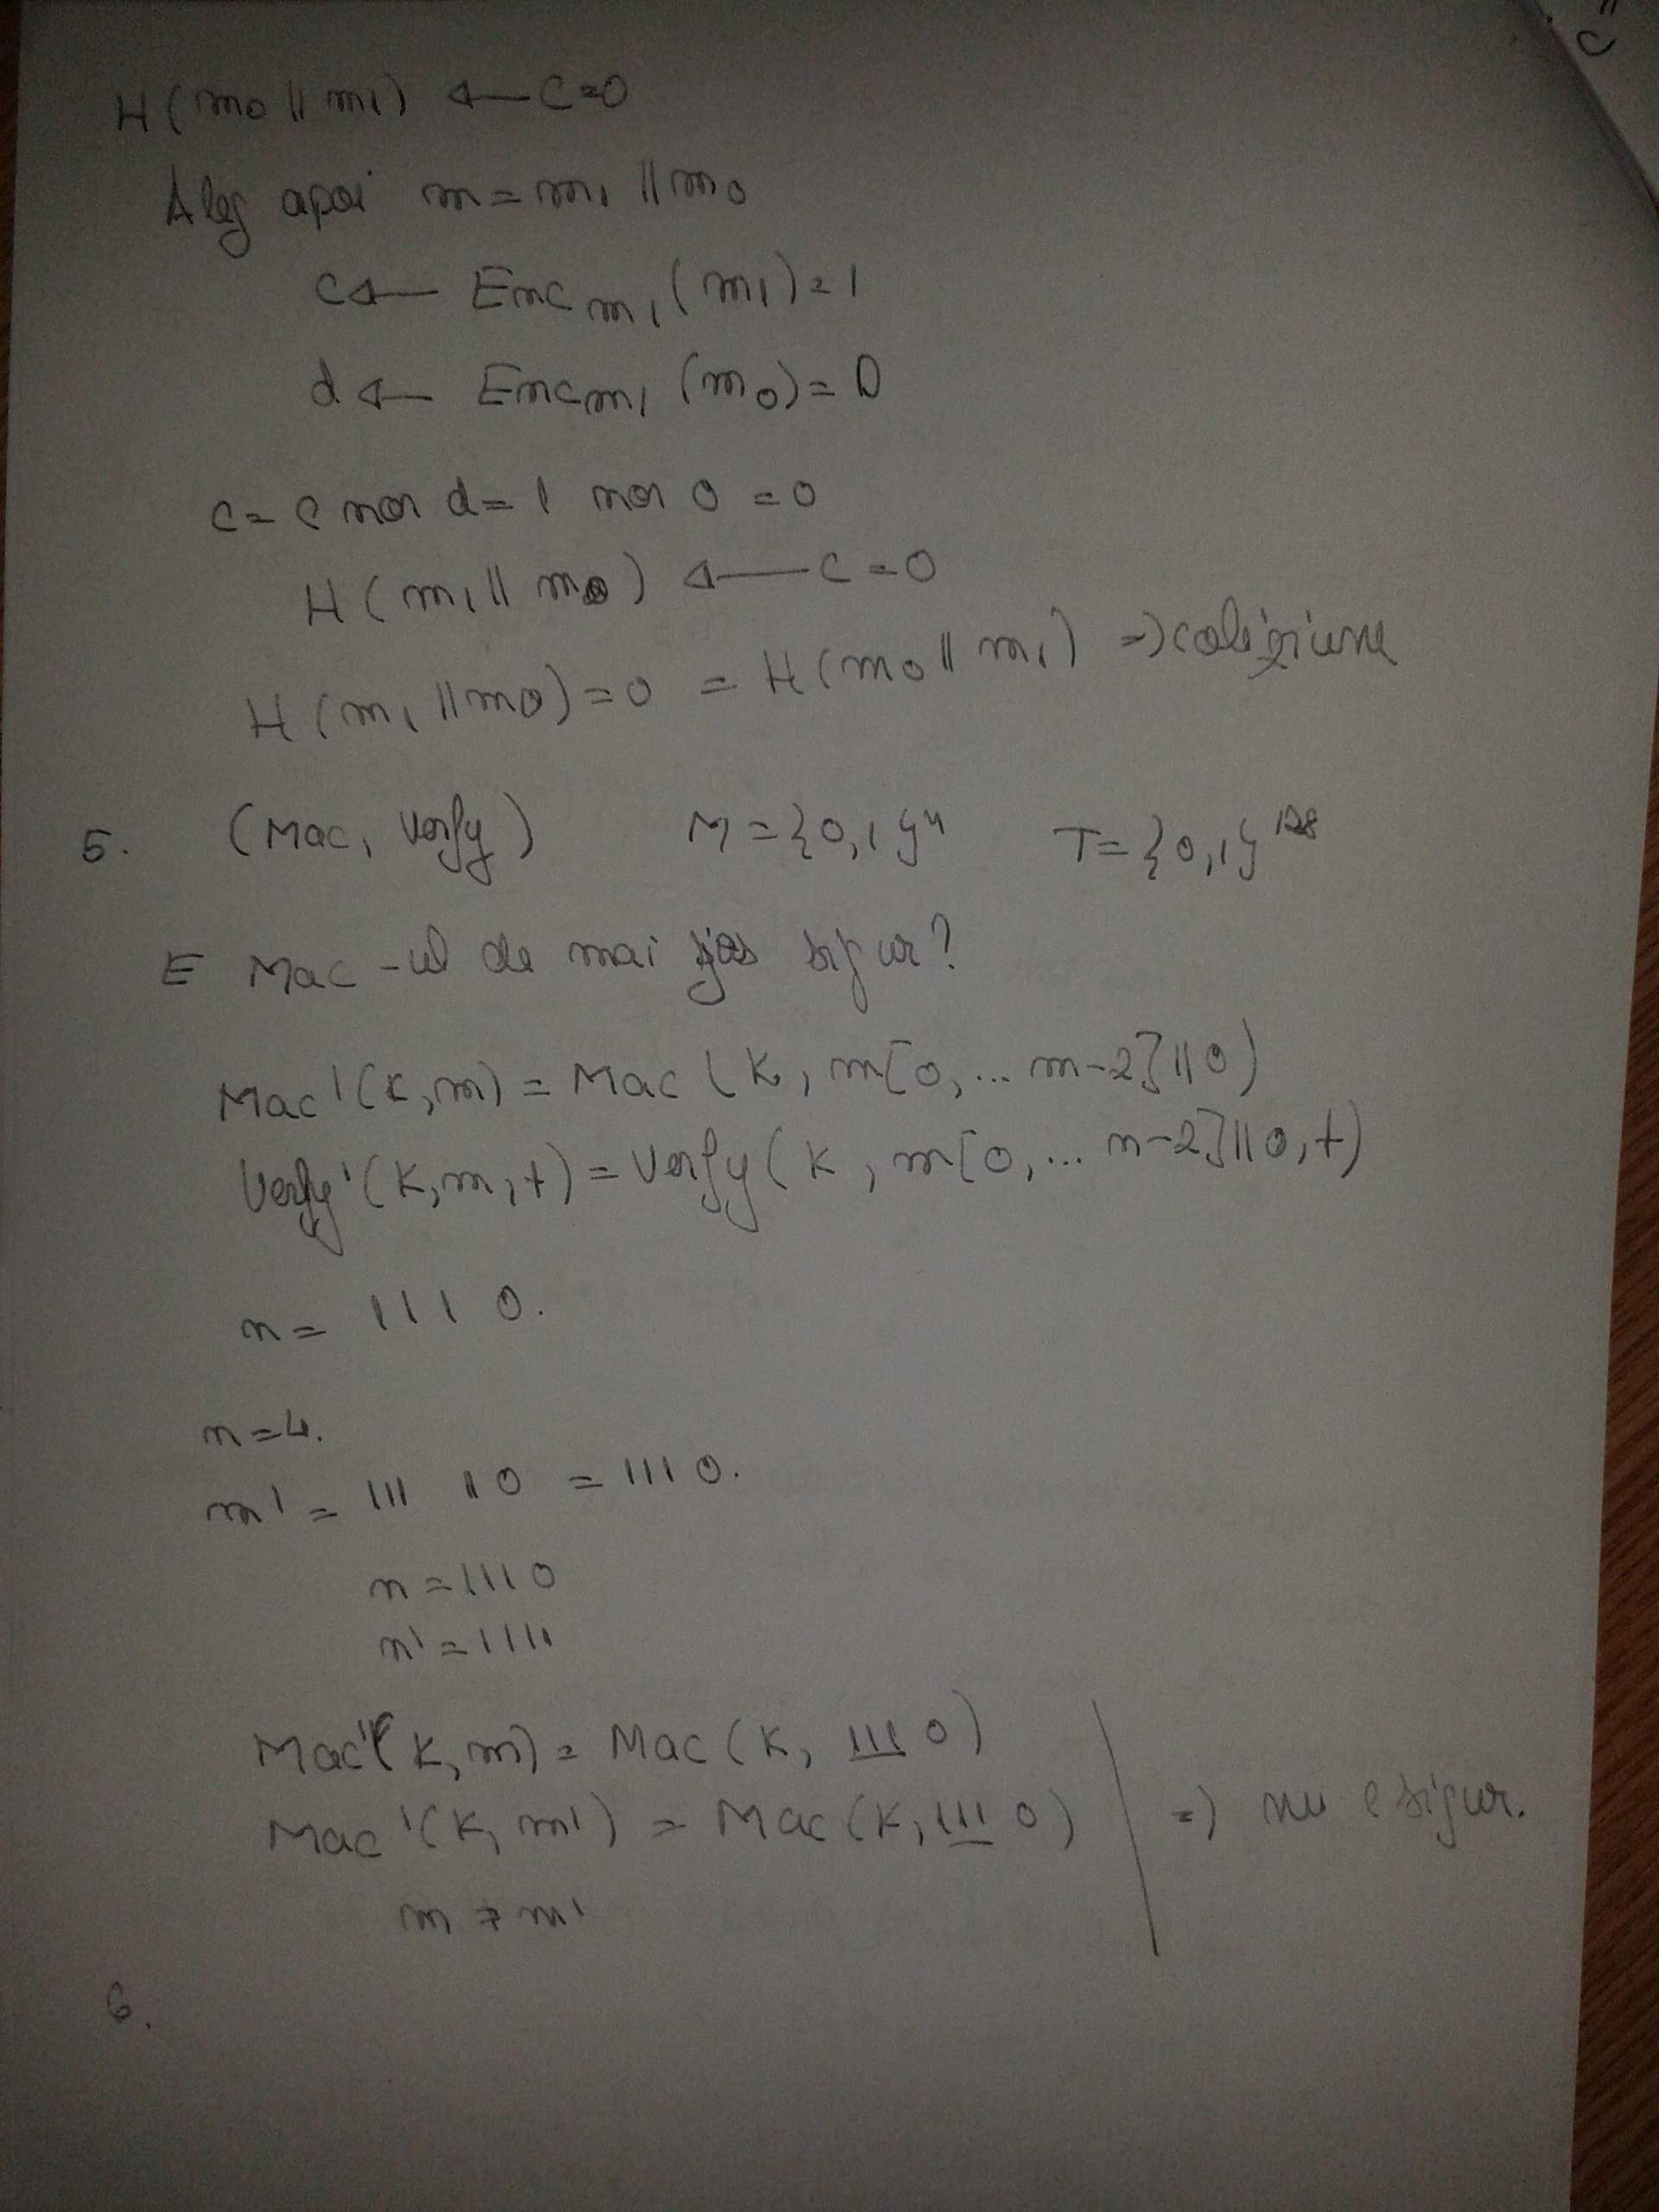 c=
H(m0 || m1) ← c=0
Aleg apoi m = m1 || m0
c ← Enc m1 (m1) = 1
d ← Enc m1 (m0) = 0
c = c nor d = 1 nor 0 = 0
H(m1 || m0) ← c = 0
H(m1 || m0) = 0 = H(m0 || m1) => coliziune
5. (Mac, Verfy) M = {0,1}^n T = {0,1}^128
E Mac-ul de mai jos sigur?
Mac'(K,m) = Mac(K, m[0,... n-2] || 0)
Verfy'(K,m,t) = Verfy(K, m[0,... n-2] || 0, t)
m = 1110.
n=4.
m' = 111 || 0 = 1110.
m = 1110
m' = 1111
Mac'(K,m) = Mac(K, 111 0)
Mac'(K,m') = Mac(K, 111 0) => nu e sigur.
m ≠ m'
6.